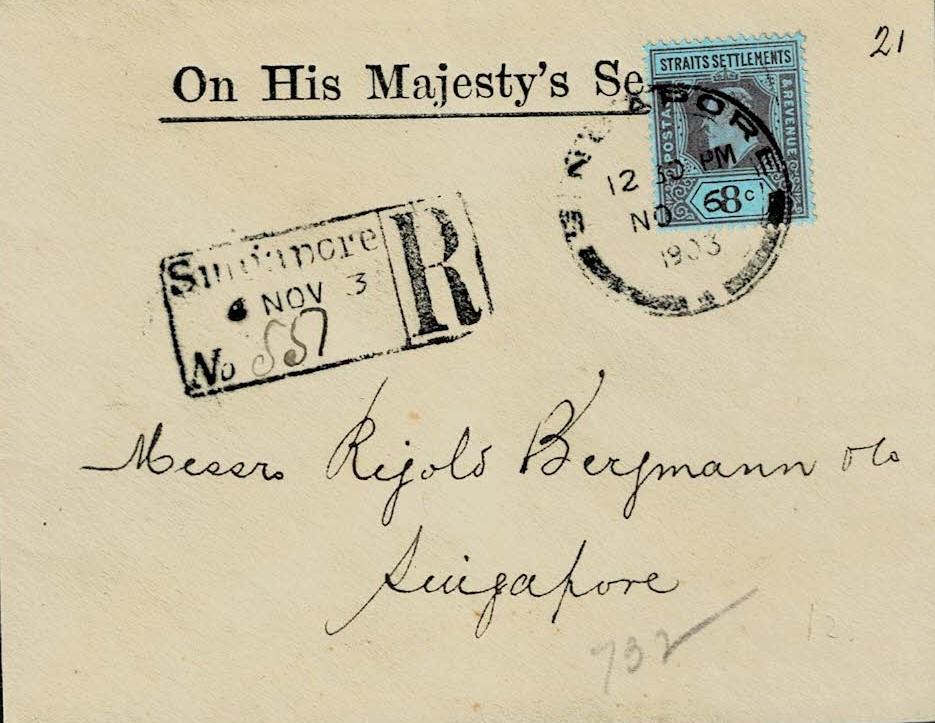 21
On His Majesty's Se
STRAITS SETTLEMENTS
POSTA
& REVENUE
68c
PORE
12 PM
NO
1903
Singapore
NOV 3
No 557
R
Messrs Rigold Bergmann & Co
Singapore
732
12.